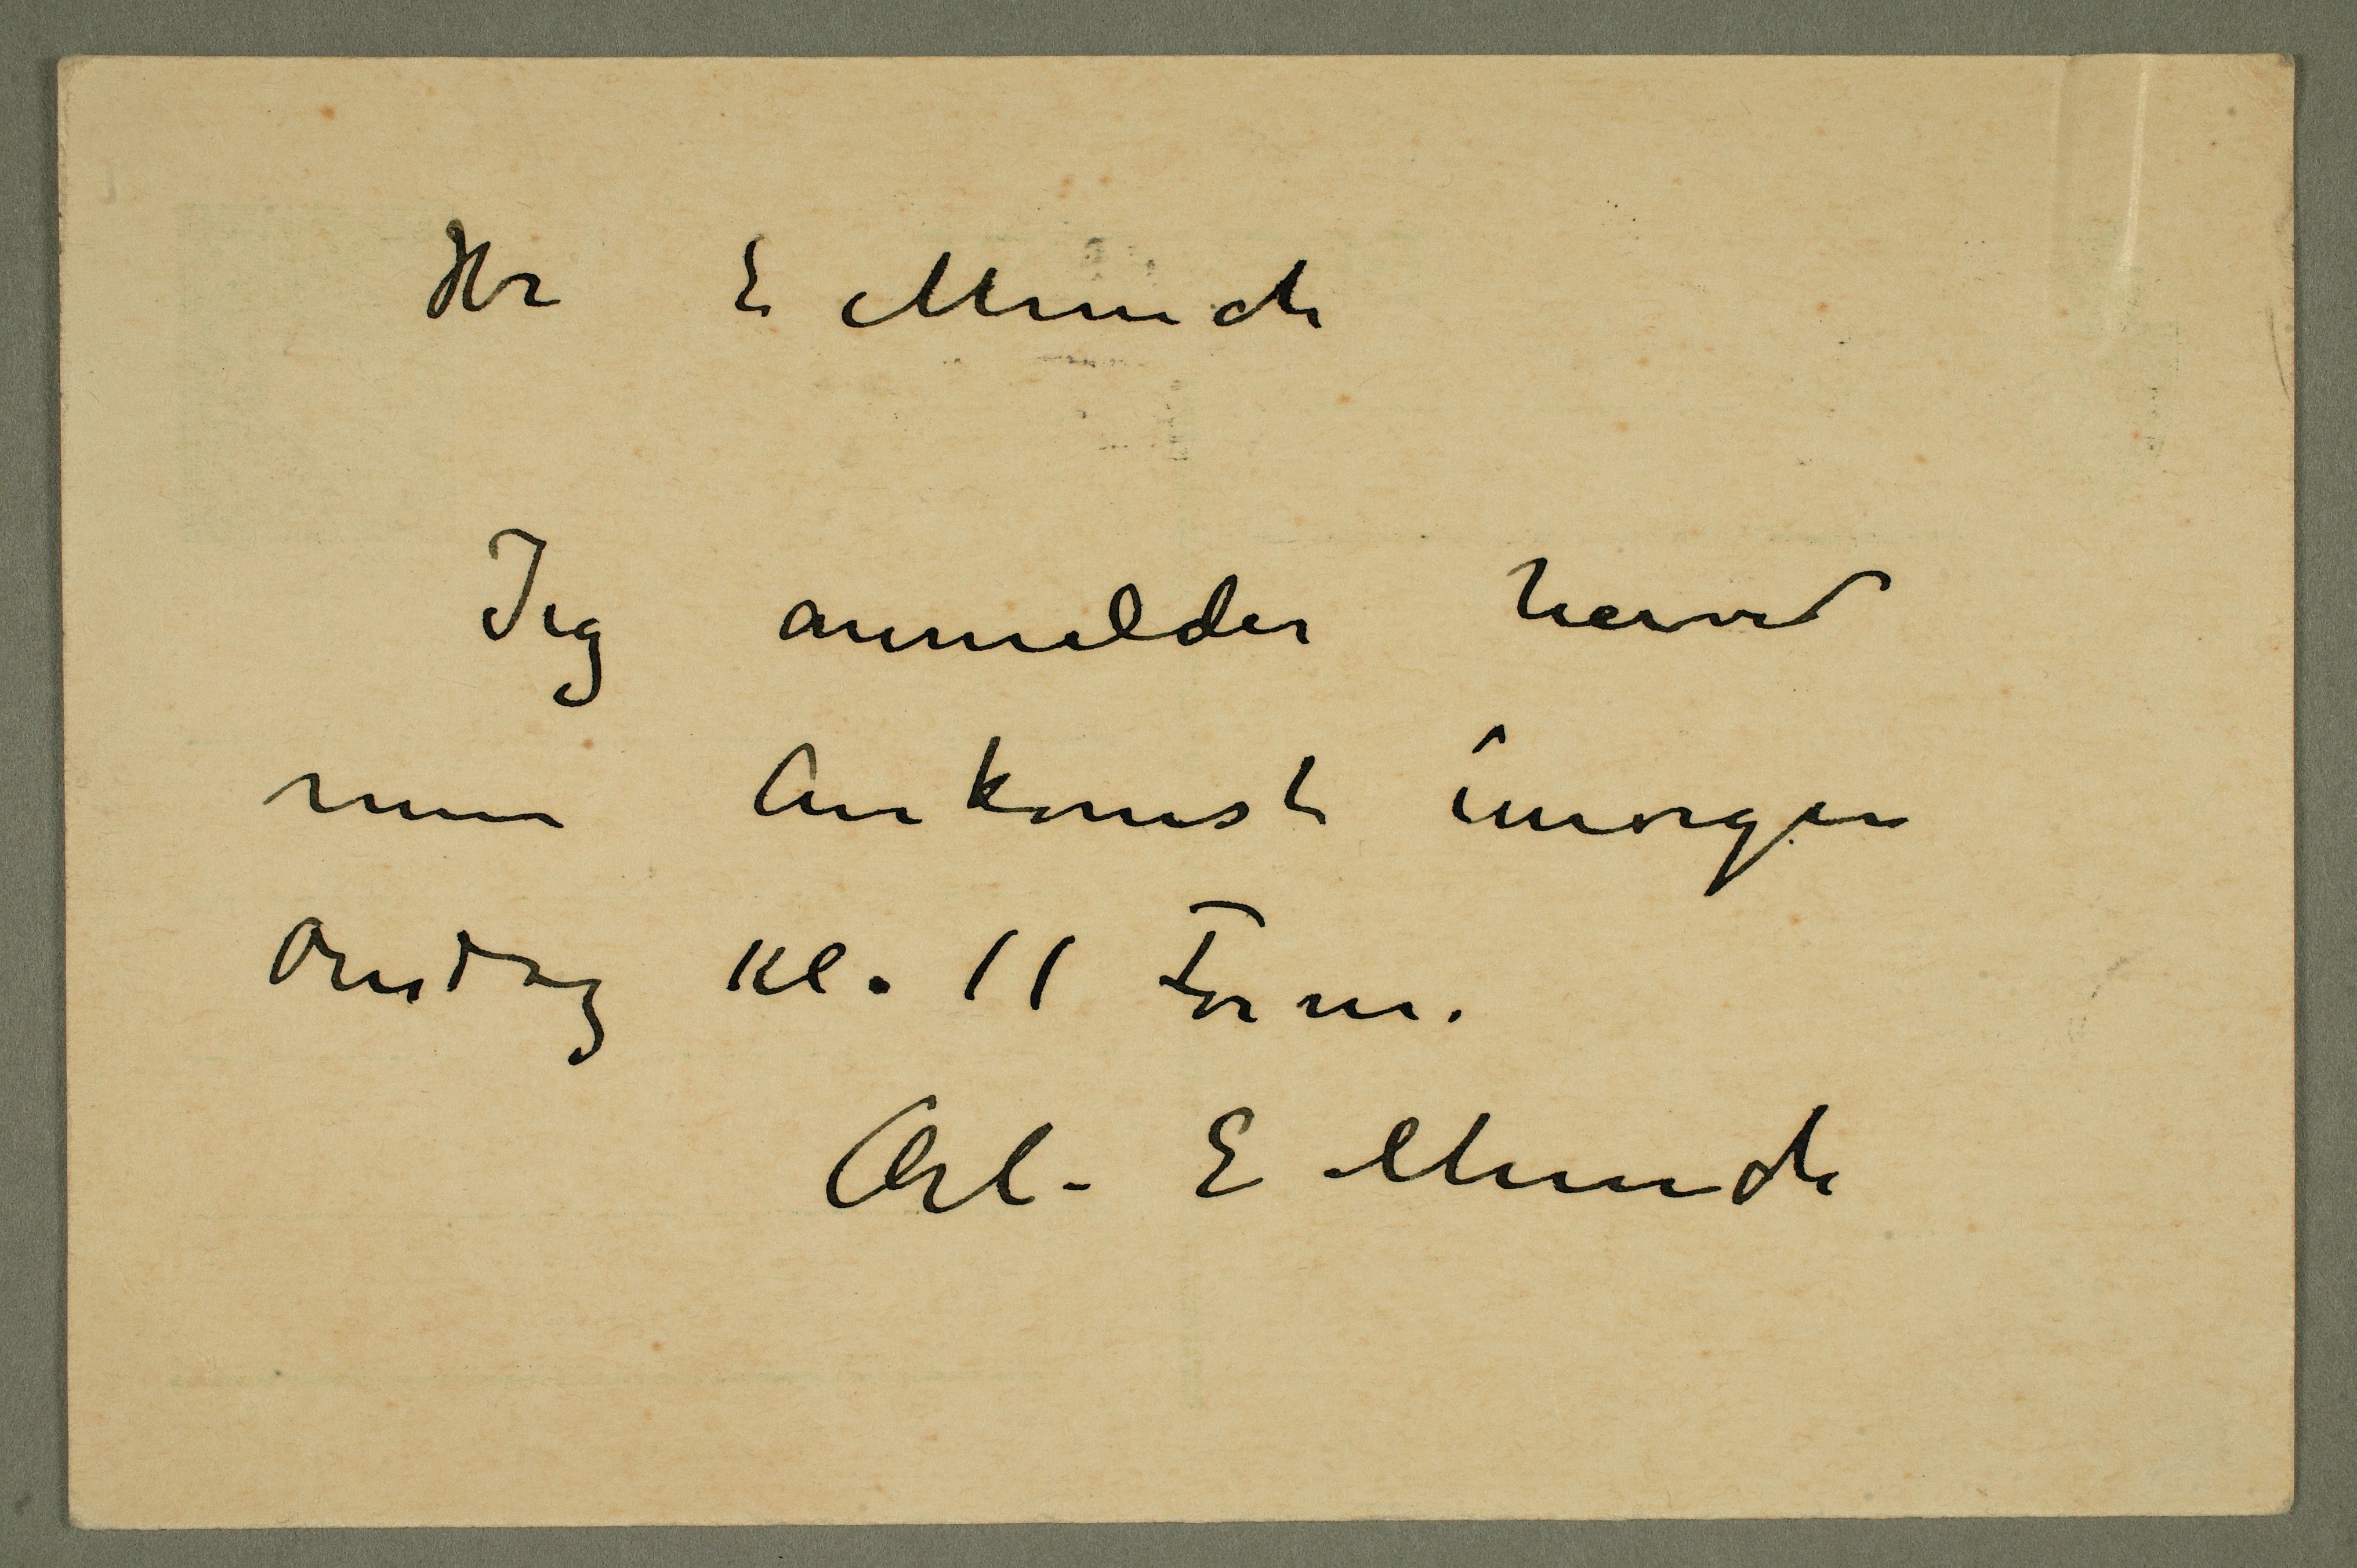 Hr E Munch
Jeg anmelder herved
min Ankomst imorgen
Onsdag Kl. 11 Form.
Ærb. E Munch